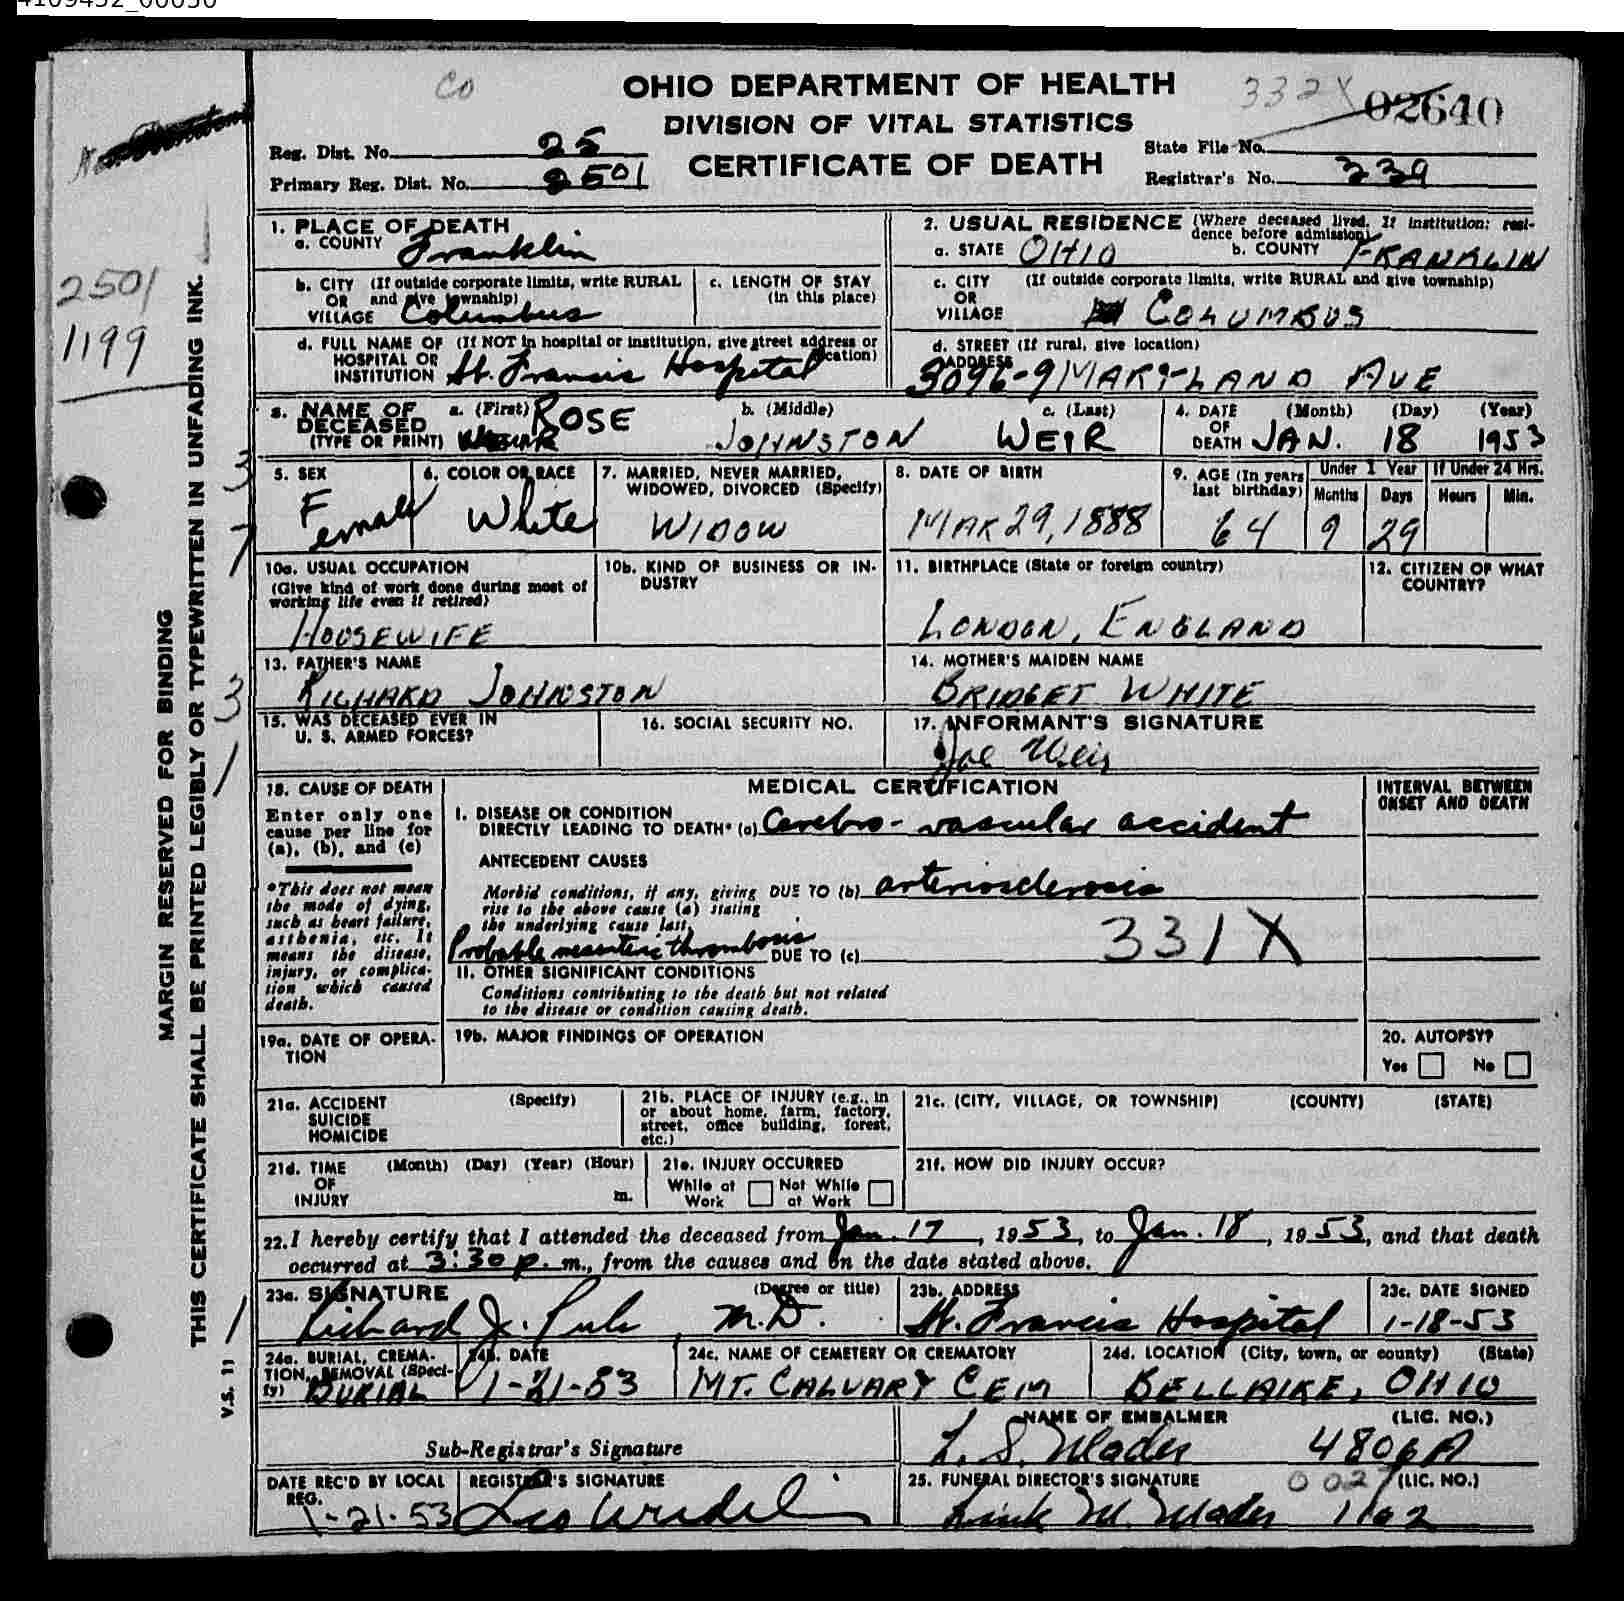 OHIO DEPARTMENT OF HEALTH
DIVISION OF VITAL STATISTICS
CERTIFICATE OF DEATH
Co
332X
02640
Reg. Dist. No. 25
Primary Reg. Dist. No. 2501
State File No.
Registrar's No. 239
2501
1199
MARGIN RESERVED FOR BINDING
THIS CERTIFICATE SHALL BE PRINTED LEGIBLY OR TYPEWRITTEN IN UNFADING INK.
V.S. 11
3
7
3
1
1
1. PLACE OF DEATH
a. COUNTY Franklin
b. CITY (If outside corporate limits, write RURAL
OR and give township)
VILLAGE Columbus
c. LENGTH OF STAY
(in this place)
d. FULL NAME OF (If NOT in hospital or institution, give street address or
HOSPITAL OR location)
INSTITUTION St. Francis Hospital
2. USUAL RESIDENCE (Where deceased lived. If institution: resi-
dence before admission)
a. STATE OHIO b. COUNTY FRANKLIN
c. CITY (If outside corporate limits, write RURAL and give township)
OR
VILLAGE COLUMBUS
d. STREET (If rural, give location)
ADDRESS 3096-9 MARYLAND AVE
3. NAME OF DECEASED (TYPE OR PRINT)
a. (First) ROSE
b. (Middle) JOHNSTON
c. (Last) WEIR
4. DATE OF DEATH (Month) (Day) (Year)
JAN. 18 1953
5. SEX Female
6. COLOR OR RACE White
7. MARRIED, NEVER MARRIED,
WIDOWED, DIVORCED (Specify)
WIDOW
8. DATE OF BIRTH
MAR 29, 1888
9. AGE (In years last birthday) 64
Under 1 Year Months 9 Days 29
If Under 24 Hrs. Hours Min.
10a. USUAL OCCUPATION
(Give kind of work done during most of
working life even if retired)
HOUSEWIFE
10b. KIND OF BUSINESS OR IN-
DUSTRY
11. BIRTHPLACE (State or foreign country)
LONDON, ENGLAND
12. CITIZEN OF WHAT
COUNTRY?
13. FATHER'S NAME
RICHARD JOHNSTON
14. MOTHER'S MAIDEN NAME
BRIDGET WHITE
15. WAS DECEASED EVER IN
U. S. ARMED FORCES?
16. SOCIAL SECURITY NO.
17. INFORMANT'S SIGNATURE
Joe Weir
18. CAUSE OF DEATH
Enter only one
cause per line for
(a), (b), and (c)
*This does not mean
the mode of dying,
such as heart failure,
asthenia, etc. It
means the disease,
injury, or complica-
tion which caused
death.
MEDICAL CERTIFICATION
INTERVAL BETWEEN
ONSET AND DEATH
I. DISEASE OR CONDITION
DIRECTLY LEADING TO DEATH* (a) Cerebro-vascular accident
ANTECEDENT CAUSES
Morbid conditions, if any, giving DUE TO (b) arteriosclerosis
rise to the above cause (a) stating
the underlying cause last.
Probable mesenteric thrombosis DUE TO (c)
331X
II. OTHER SIGNIFICANT CONDITIONS
Conditions contributing to the death but not related
to the disease or condition causing death.
19a. DATE OF OPERA-
TION
19b. MAJOR FINDINGS OF OPERATION
20. AUTOPSY?
Yes No
21a. ACCIDENT (Specify)
SUICIDE
HOMICIDE
21b. PLACE OF INJURY (e.g., in
or about home, farm, factory,
street, office building, forest,
etc.)
21c. (CITY, VILLAGE, OR TOWNSHIP) (COUNTY) (STATE)
21d. TIME (Month) (Day) (Year) (Hour)
OF
INJURY m.
21e. INJURY OCCURRED
While at Work Not While at Work
21f. HOW DID INJURY OCCUR?
22. I hereby certify that I attended the deceased from Jan. 17, 1953, to Jan. 18, 1953, and that death
occurred at 3:30 p. m., from the causes and on the date stated above.
23a. SIGNATURE (Degree or title)
Richard J. M.D.
23b. ADDRESS
St. Francis Hospital
23c. DATE SIGNED
1-18-53
24a. BURIAL, CREMA-
TION, REMOVAL (Speci-
fy) BURIAL
24b. DATE
1-21-53
24c. NAME OF CEMETERY OR CREMATORY
MT. CALVARY CEM
24d. LOCATION (City, town, or county) (State)
BELLAIRE, OHIO
Sub-Registrar's Signature
NAME OF EMBALMER (LIC. NO.)
L. S. Mader 4806A
DATE REC'D BY LOCAL
REG.
1-21-53
REGISTRAR'S SIGNATURE
25. FUNERAL DIRECTOR'S SIGNATURE (LIC. NO.)
0027
M. Mader 1162